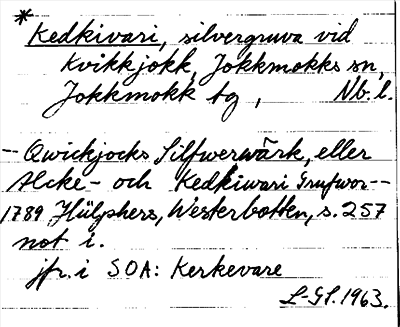 * Kedkivari, silvergruva vid
Kvikkjokk, Jokkmokks sn,
Jokkmokk tg, Nb. l.
- Qwickjocks Silfwerwärk, eller
Alcke- och Kedkiwari Grufwor--
1789 Hülphers, Westerbotten, s. 257
not i.
jfr. i SOA: Kerkevare
L-GL. 1963.